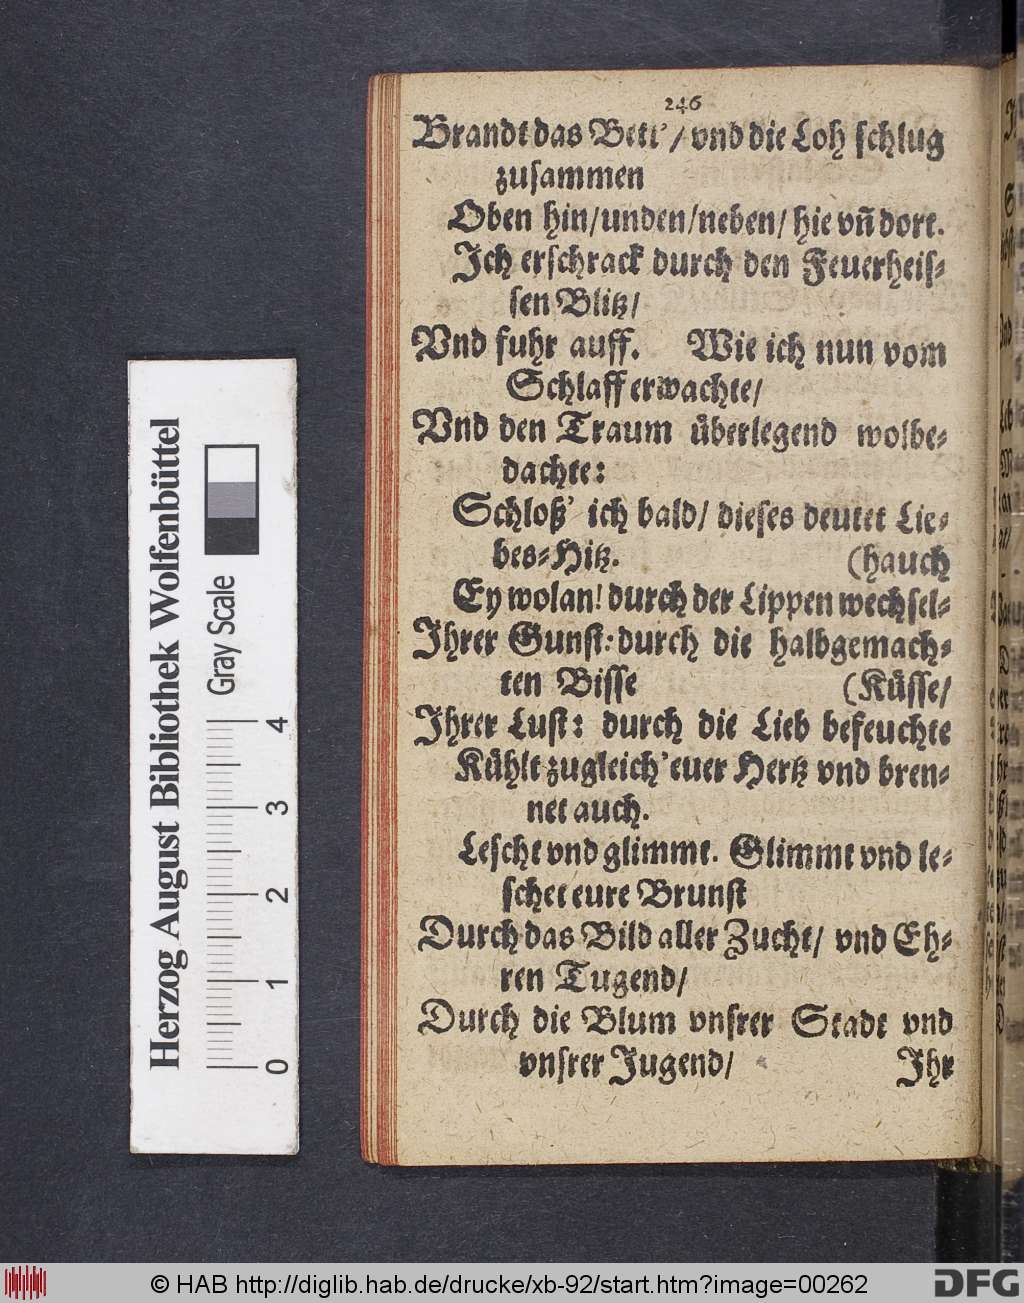 246
Brandt das Bett'/ vnd die Loh schlug
zusammen
Oben hin/unden/neben/ hie vñ dort.
Ich erschrack durch den Feuerheis-
sen Blitz/
Vnd fuhr auff. Wie ich nun vom
Schlaff erwachte/
Vnd den Traum überlegend wolbe-
dachte:
Schloß' ich bald/ dieses deutet Lie-
bes-Hitz. (hauch
Ey wolan! durch der Lippen wechsel-
Ihrer Gunst: durch die halbgemach-
ten Bisse (Küsse/
Ihrer Lust: durch die Lieb befeuchte
Kühlt zugleich' euer Hertz vnd bren-
net auch.
Lescht vnd glimmt. Glimmt vnd le-
schet eure Brunst
Durch das Bild aller Zucht/ vnd Eh-
ren Tugend/
Durch die Blum vnsrer Stadt vnd
vnsrer Jugend/ Ihr
Herzog August Bibliothek Wolfenbüttel
Gray Scale
0 1 2 3 4
© HAB http://diglib.hab.de/drucke/xb-92/start.htm?image=00262
DFG